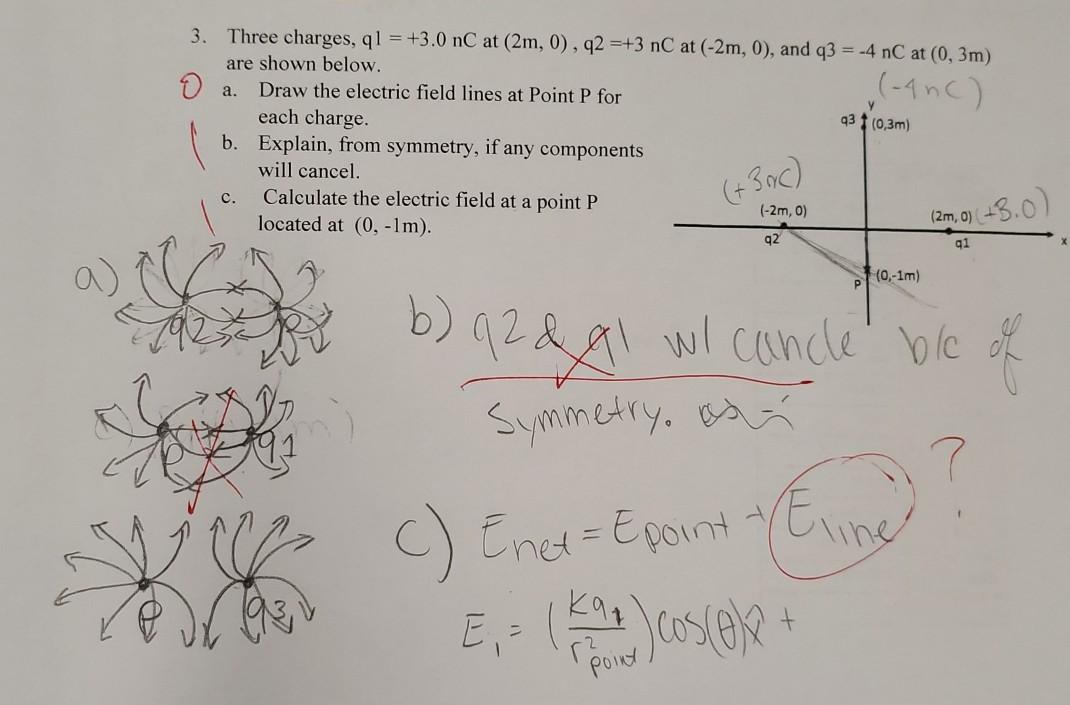 3. Three charges, q1 = +3.0 nC at (2m, 0) , q2 =+3 nC at (-2m, 0), and q3 = -4 nC at (0, 3m)
are shown below.
0 a. Draw the electric field lines at Point P for
each charge.
1 b. Explain, from symmetry, if any components
will cancel.
1 c. Calculate the electric field at a point P
located at (0, -1m).
(-4nC)
y
q3 (0,3m)
(+3nC)
(-2m, 0)
q2
(2m, 0) (+3.0)
q1
x
P (0,-1m)
a)
q2 P
P q1
P q3
b) q2 & q1 w/ cancle b/c of
symmetry.
c) Enet = Epoint + Eline ?
E1 = (Kq1/r²point) cos(θ)x̂ +